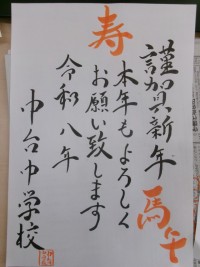 謹賀新年
馬午
寿
本年もよろしく
お願い致します
令和八年
中台中学校